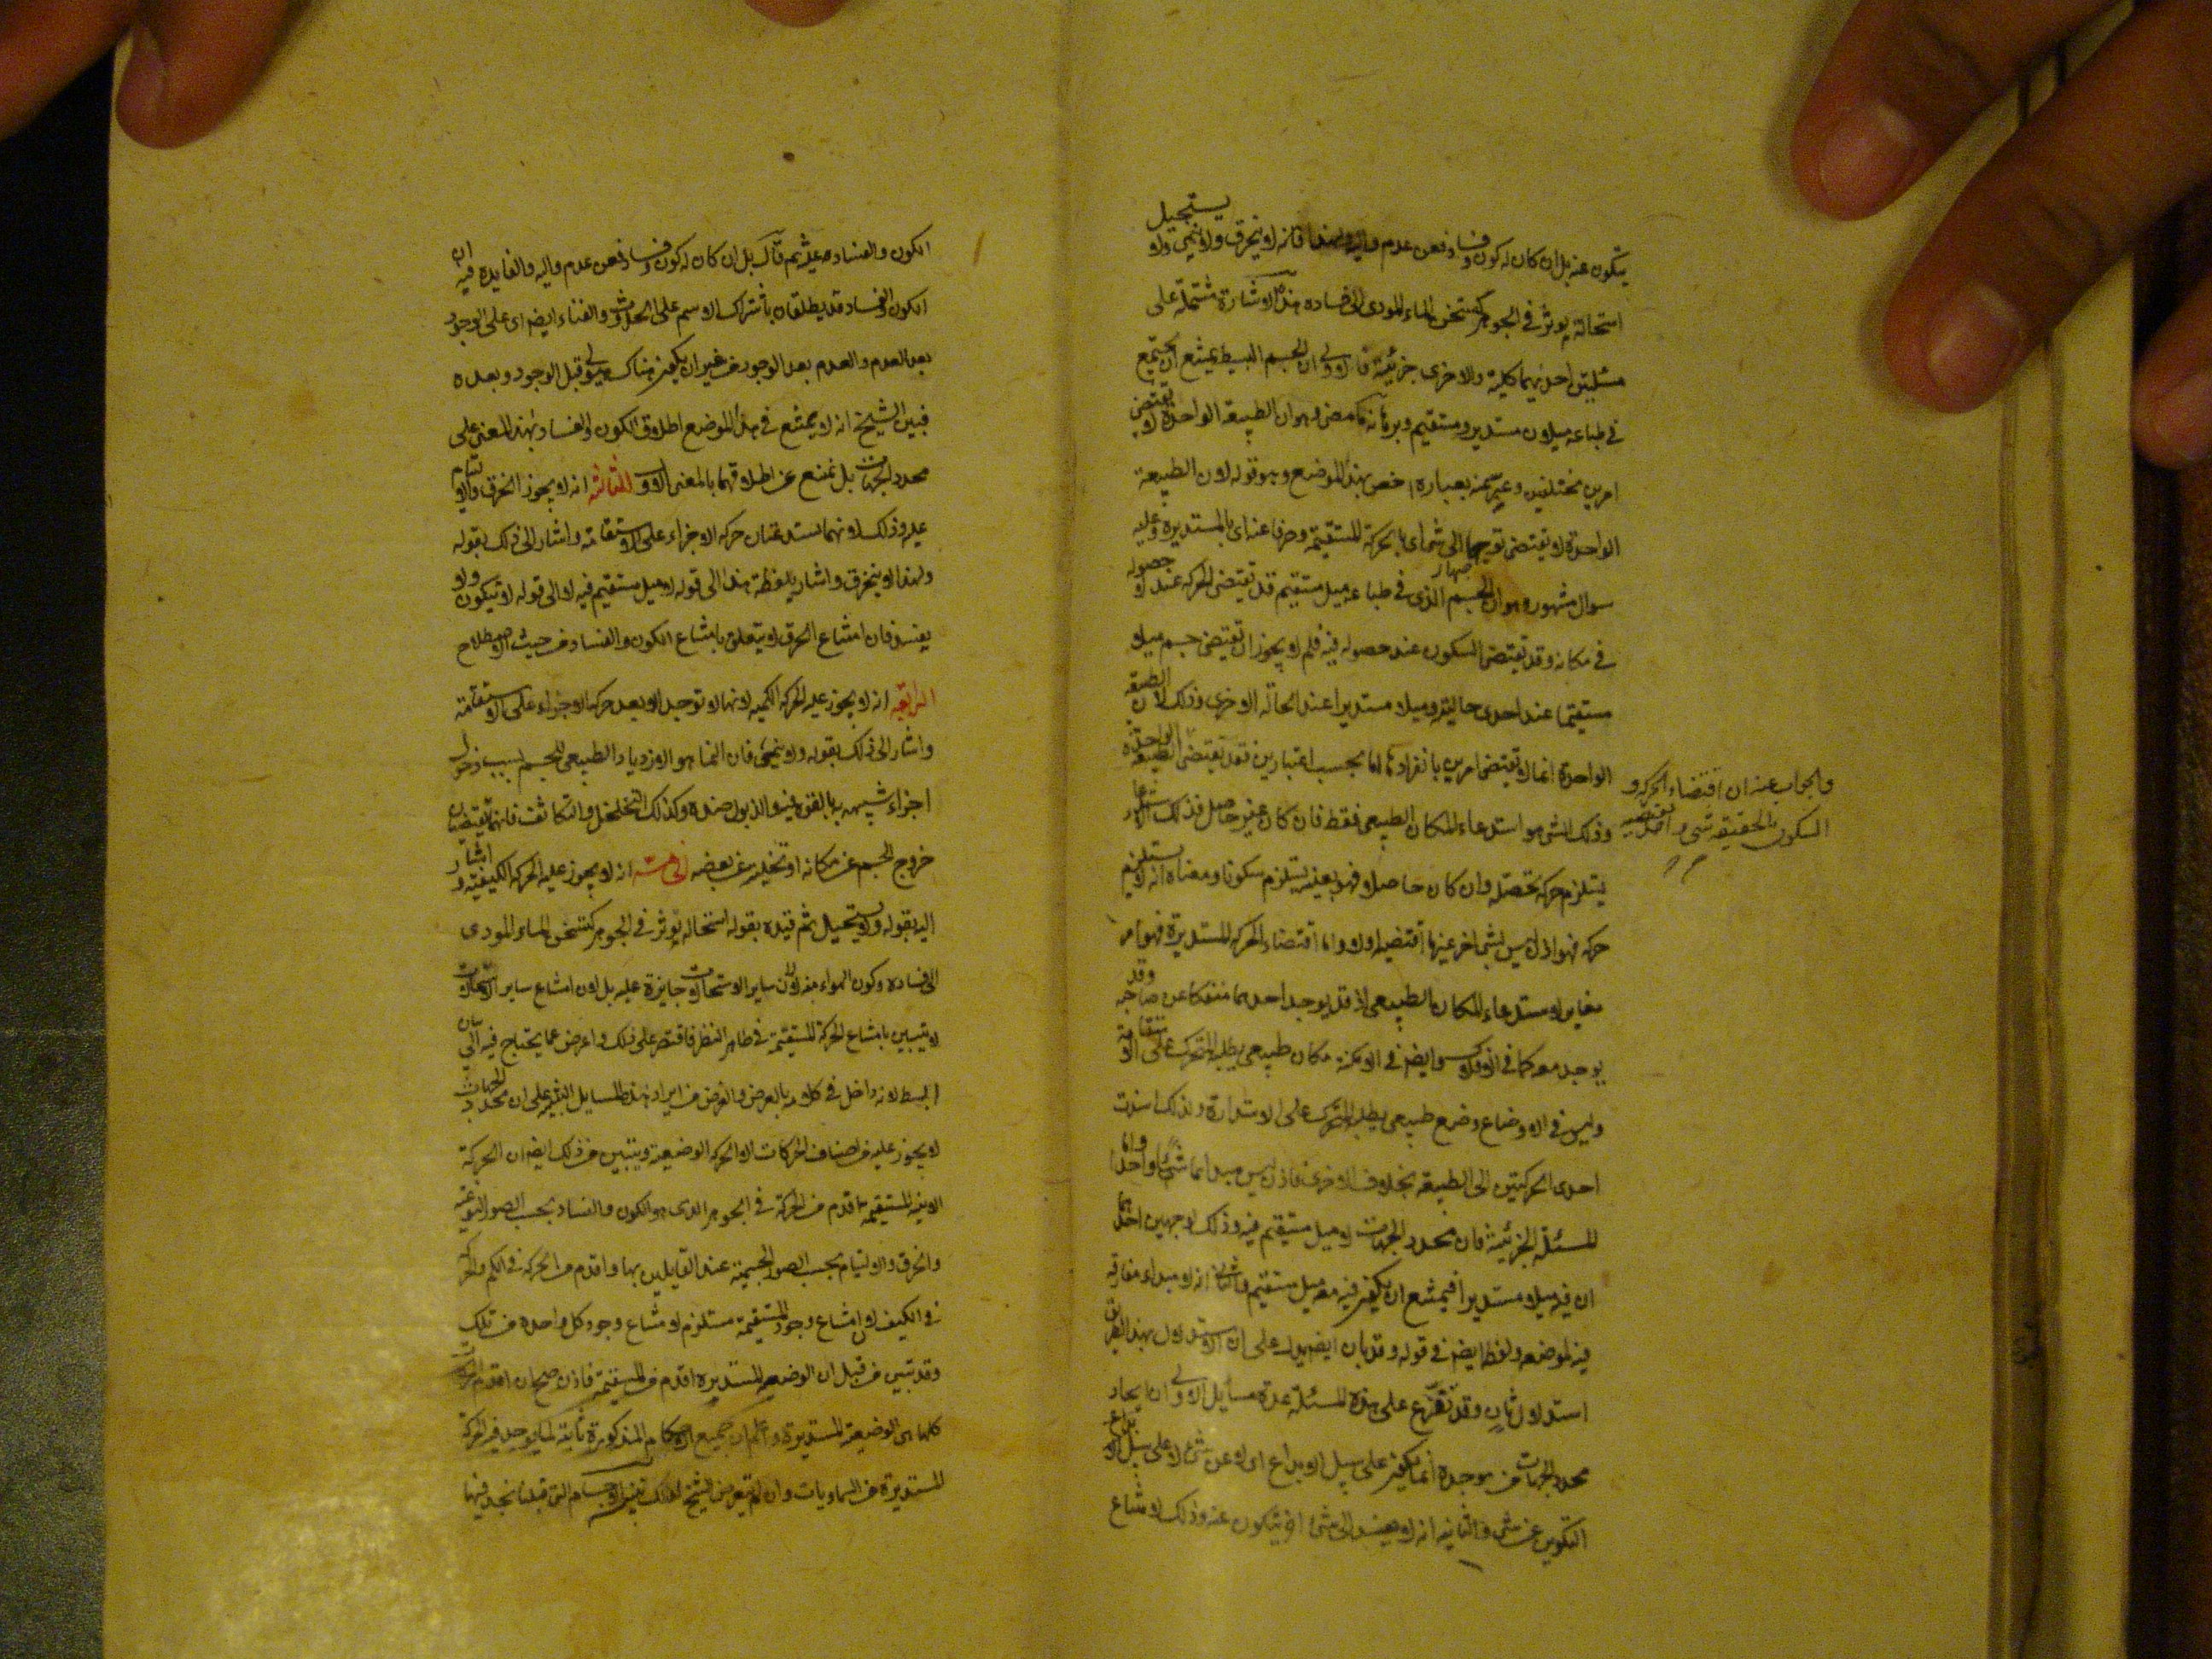 يتكون عنه بل ان كان له كون وفساد فعن عدم واليه ولهذا فانه لا ينخرق ولا ينمى ولا يستحيل
استحالة يوثر في الجوهر كتسخن الماء المودى الى فساده هذه الاشارة مشتملة على
مسئلتين احديهما كلية والاخرى جزئية فالاولى ان الجسم البسيط يمتنع ان يجتمع
في طباعه ميلان مستدير ومستقيم وبرهانه ما مضى وهو ان الطبيعة الواحدة لا يقتضى
امرين مختلفين وعبر عنه بعبارة اخص بهذا الموضع وهو قوله لان الطبيعة
الواحدة لا يقتضى توجها الى شئ اى بالحركة المستقيمة وصرفا عنه اى بالمستديرة وعليه
سوال مشهور وهو ان الجسم الذى في طباعه ميل مستقيم قد يقتضى الحركة عند لا حصوله
في مكانه وقد يقتضى السكون عند حصوله فيه فلم لا يجوز ان يقتضى جسم ميلا
مستقيما عند احدى حالتيه وميلا مستديرا عند الحالة الاخرى وذلك لان الطبيعة
الواحدة انما لا يقتضى امرين بانفرادها اما بحسب اعتبارين فقد يقتضى الطبيعة الواحدة
والجواب عنه ان اقتضاء الحركة و
السكون بالحقيقة شئ واحد
وذلك الشئ هو استدعاء المكان الطبيعى فقط فان كان غير حاصل فذلك
يستلزم حركة تحصله وان كان حاصلا فهو بعينه يستلزم سكونا ومعناه انه لا يستلزم
حركة فهو اذن ليس بشئ اخر غير ما اقتضيه اولا واما اقتضاء الحركة المستديرة فهو امر
مغاير لاستدعاء المكان الطبيعى اذ قد يوجد احدهما منفكا عن صاحبه وقد
يوجد معه كما في الافلاك وايضا في الامكنة مكان طبيعى يطلبه المتحرك على الاستقامة
وليس في الاوضاع وضع طبيعى يطلبه المتحرك على الاستدارة ولذلك اسندت
احدى الحركتين الى الطبيعة بخلاف الاخرى فاذن ليس مبداهما شيئا واحدا واما
المسئلة الجزئية فان محدد الجهات لا ميل مستقيم فيه وذلك لوجهين احدهما
ان فيه ميلا مستديرا فيمتنع ان يكون فيه معه ميل مستقيم والثانى انه لا مبداء مفارقة
فيه لموضعه ولفظة ايضا في قوله وقد بان ايضا يدل على ان الاستدلال بهذا الطريق
استدلال ثان وقد تفرع على هذه المسئلة عدة مسايل الاولى ان ايجاد
محدد الجهات عن موجده انما يكون على سبيل الابداع اى لا عن شئ لا على سبيل
التكوين عن شئ والثانية انه لا يفسد الى شئ اخر يتكون عنه وذلك لامتناع
الكون والفساد عليه ثم قال بل ان كان له كون وفساد فعن عدم واليه والفايدة فيه ان
الكون والفساد قد يطلقان باشتراك الاسم على الحدوث والفناء ايضا اى على الوجود
بعد العدم والعدم بعد الوجود من غير ان يكون هناك هيولى قبل الوجود وبعده
فبين الشيخ انه لا يمتنع في هذا الموضع اطلاق الكون والفساد بهذا المعنى على
محدد الجهات بل يمنع عن اطلاقهما بالمعنى الاول الثالثة انه لا يجوز الخرق والالتيام
عليه وذلك لانهما يستدعيان حركة الاجزاء على الاستقامة واشار الى ذلك بقوله
ولهذا لا ينخرق واشار بلفظة هذا الى قوله لا ميل مستقيم فيه لا الى قوله لا يتكون ولا
يفسد فان امتناع الخرق لا يتعلق بامتناع الكون والفساد من حيث الاصطلاح
الرابعة انه لا يجوز عليه الحركة الكمية لانها لا توجد الا بعد حركة الاجزاء على الاستقامة
واشار الى ذلك بقوله ولا ينمى فان النما هو الازدياد الطبيعى للجسم بسبب دخول
اجزاء شبيهة به بالقوة فيه والذبول ضده وكذلك التخلخل والتكاثف فانهما يقتضيان
خروج الجسم عن مكانه او تخليه عن بعضه الخامسة انه لا يجوز عليه الحركة الكيفية واشار
اليه بقوله ولا يستحيل ثم قيده بقوله استحالة يوثر في الجوهر كتسخن الماء المودى
الى فساده وكون الهواء منه لا لان ساير الاستحالات جايزة عليه بل لان امتناع ساير الاستحالات
لا يتبين بامتناع الحركة المستقيمة في ظاهر النظر فاقتصر على ذلك واعرض عما يحتاج فيه الى بيان
ابسط لانه داخل في كلامه بالعرض والغرض من ايراد هذه المسايل التنبيه على ان محدد الجهات
لا يجوز عليه من اصناف الحركات الا الحركة الوضعية ويتبين من ذلك ايضا ان الحركة
الاينية المستقيمة اقدم من الحركة في الجوهر الذى هو الكون والفساد بحسب الصور النوعية
والخرق والالتيام بحسب الصور الجسمية عند القايلين بها واقدم من الحركة في الكم والحركة
في الكيف لان امتناع وجود المستقيمة مستلزم لامتناع وجود كل واحدة من تلك
وقد تبين من قبل ان الوضعية المستديرة اقدم من المستقيمة فاذن صح ان اقدم الحركات
كلها هى الوضعية المستديرة واعلم ان جميع الاحكام المذكورة ثابتة لما يوجد فيه الحركة
المستديرة من السماويات وان لم يتعرض الشيخ لذلك الاجسام التى قبلنا نجد فيها